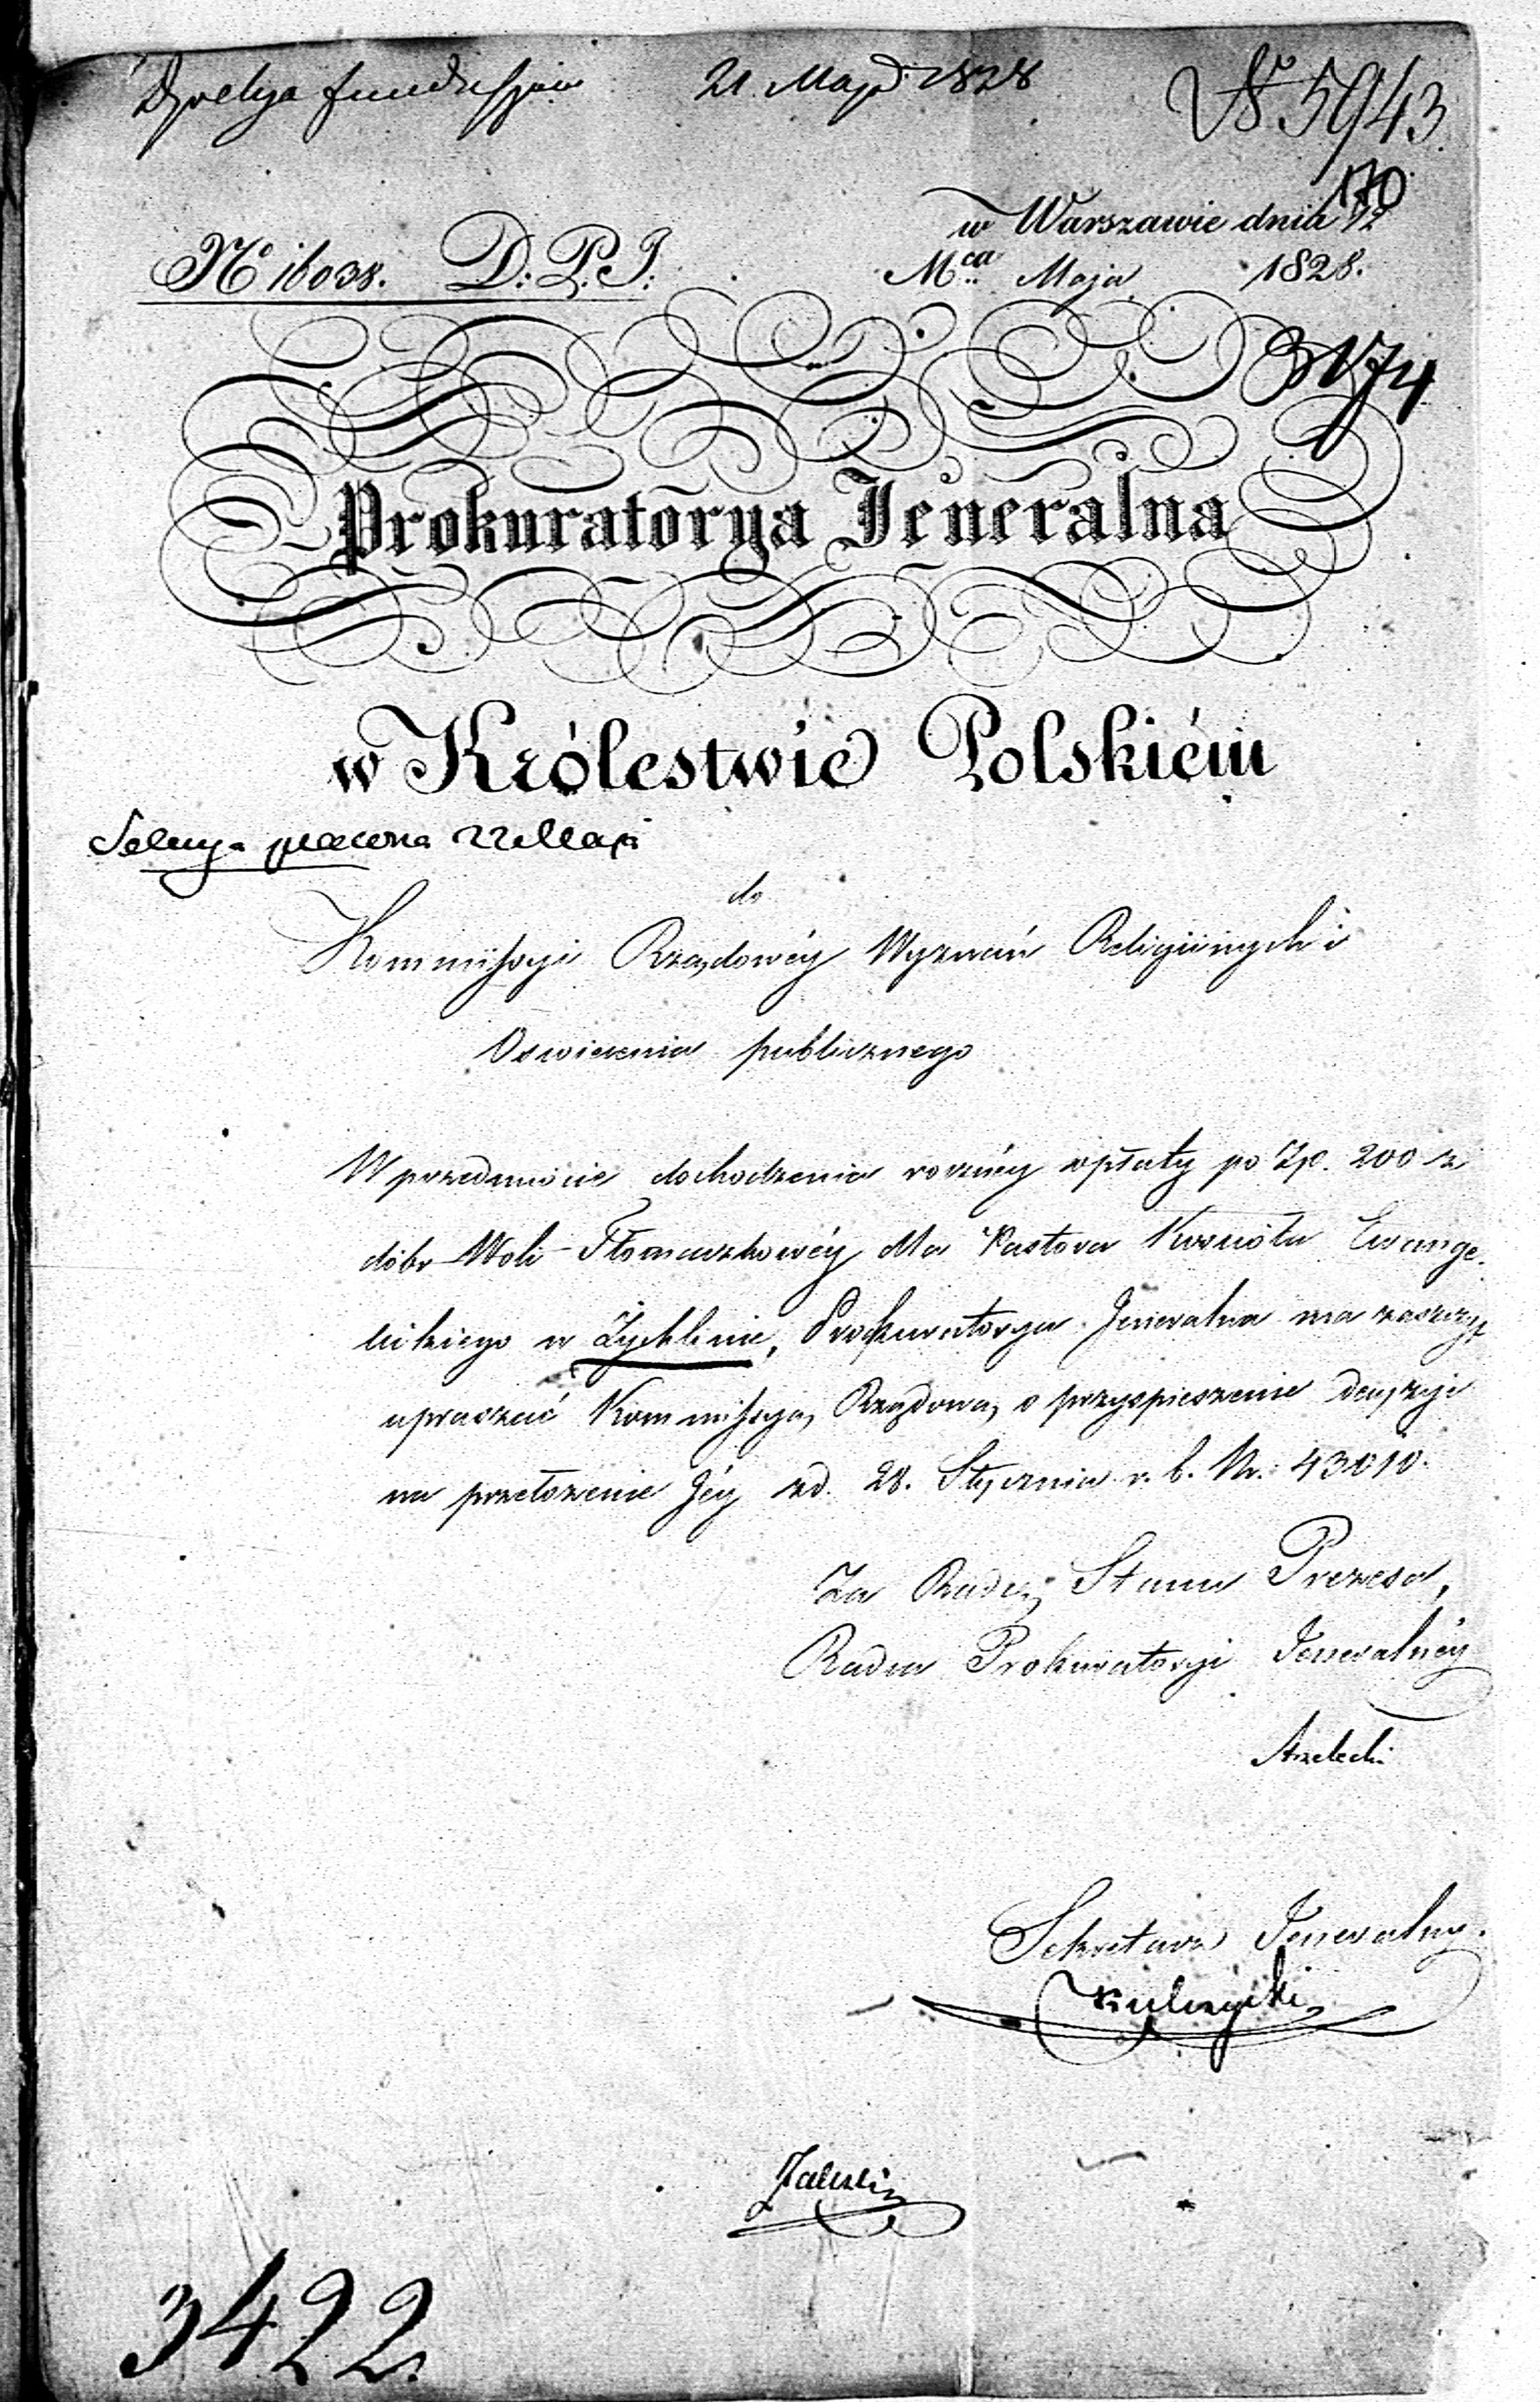 21. Maja 1828
N 5943.
170
w Warszawie dnia 12
No 16038. D: P. J:
Mca Maja 1828.
3174
Prokuratorya Jeneralna
w Królestwie Polskiém
22 Maja
do
Kommissyi Rządowéy Wyznań Religiinych i
Oswiecenia publicznego
W przedmiocie dochodzenia roczney opłaty po Zp. 200 z
dóbr Woli Tłomaszkowéy dla Pastora Kościoła Ewange-
lickiego w Żychlinie, Prokuratorya Jeneralna ma zaszczyt
upraszać Kommissyą Rządową o przyspieszenie decyzyi
na przełożenie Jéy z d. 28. Stycznia r. b. Nr. 43010.
Za Radcę Stanu Prezesa,
Radca Prokuratoryi Jeneralnéy
Strzelecki
Sekretarz Jeneralny.
Kulczycki
3422.